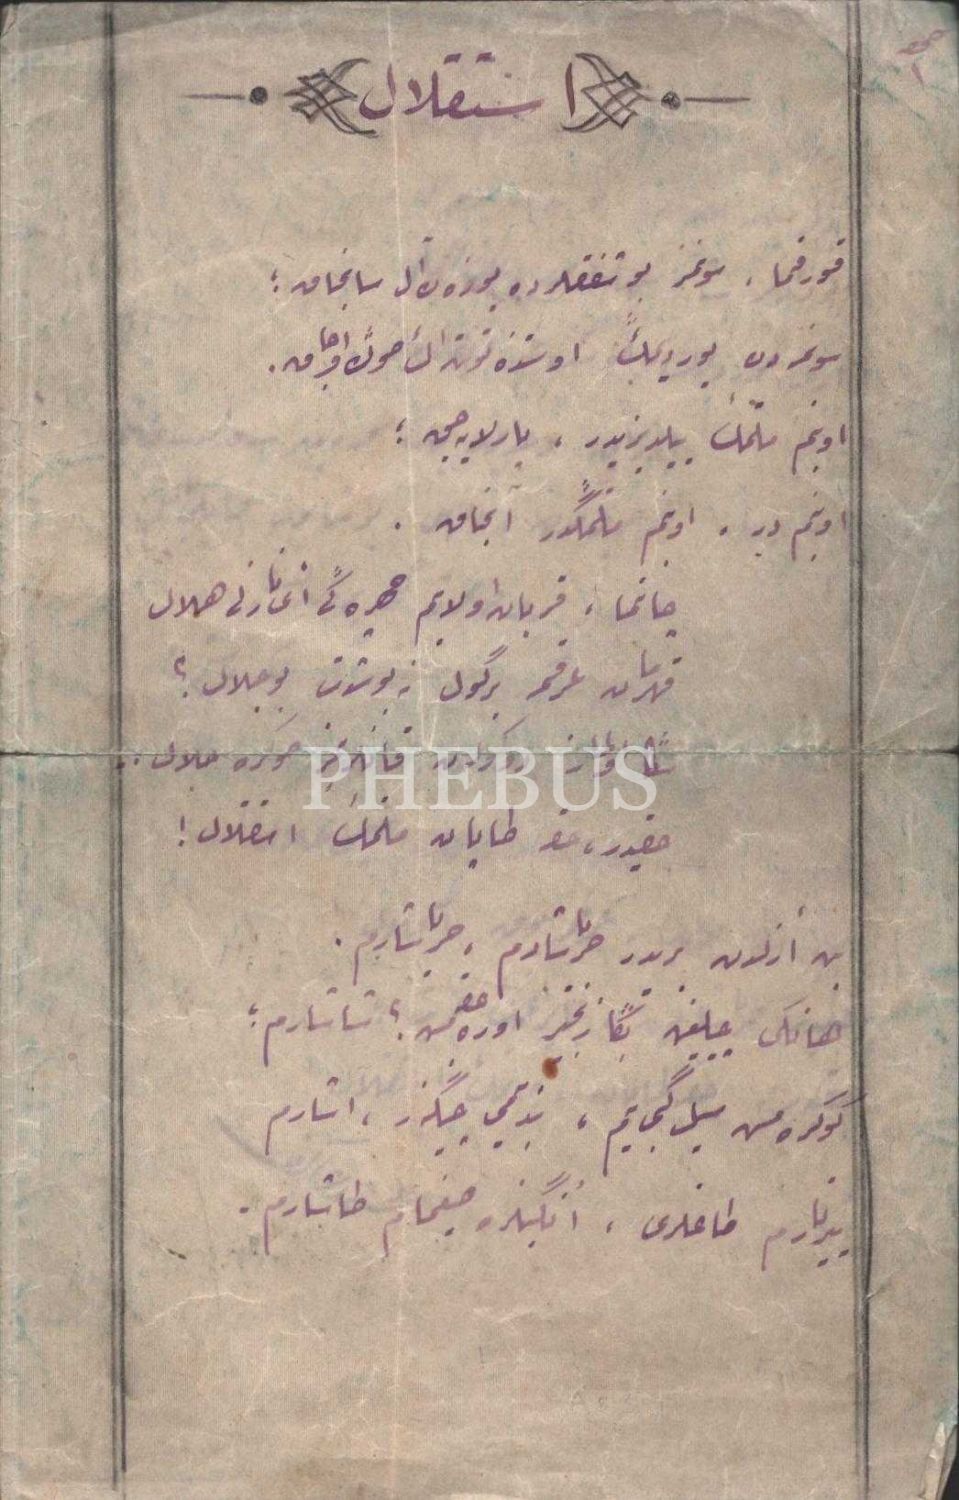 استقلال
قورقما، سونمز بو شفقلرده یوزن آل سانجاق؛
سونمه‌دن یوردیمڭ اوستنده توتن اڭ صوڭ اوجاق.
او بنم ملتمڭ ییلدیزیدر، پارلایه‌جق؛
او بنمدر، او بنم ملتمڭدر آنجاق.
چاتما، قربان اولایم چهره‌ڭی ای نازلی هلال
قهرمان عرقمه برگول نه بو شدت بو جلال؟
سڭا اولماز دوکولن قانلریمز صوڭره حلال..
حقیدر، حقه طاپان ملتمڭ استقلال!
بن ازلدن بریدر حر یاشادم، حر یاشارم.
هانگی چیلغین بڭا زنجیر اوره‌جقمش؟ شاشارم؛
کوکره‌مش سیل گبی‌یم، بندیمی چیگنر، آشارم
ییرتارم طاغلری، انگینلره صیغمام طاشارم.
PHEBUS